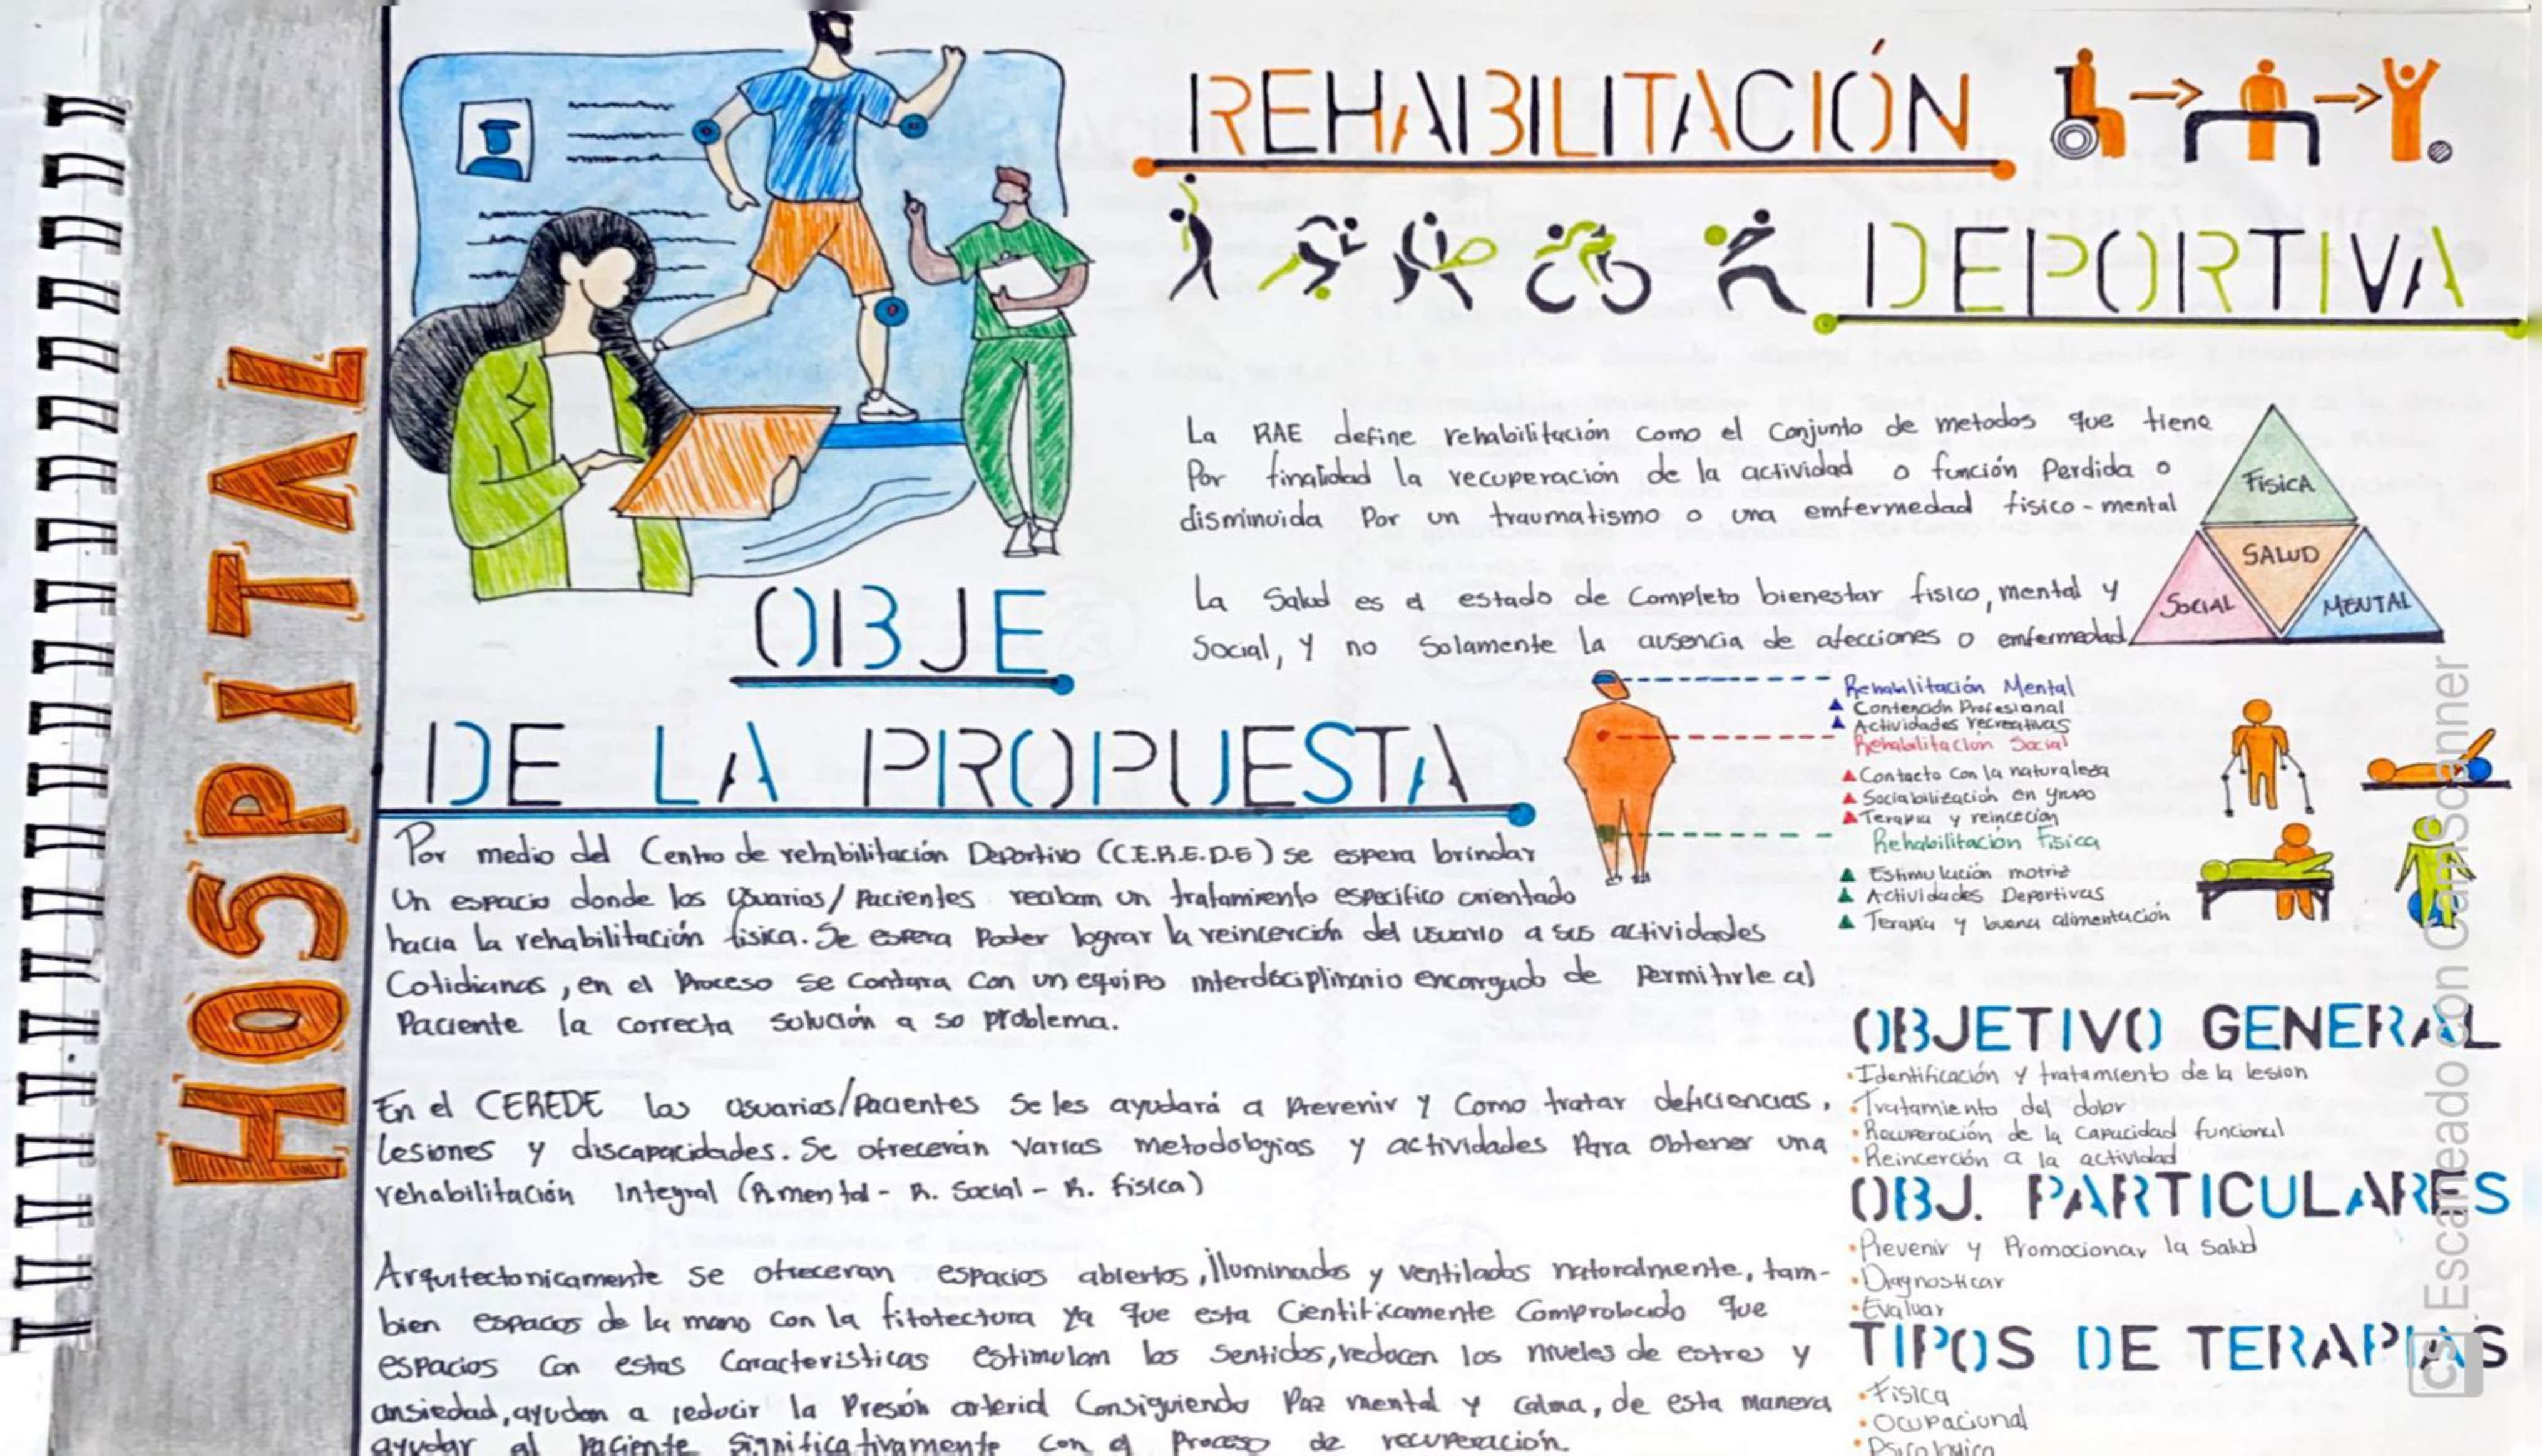 HOSPITAL
REHABILITACIÓN
DEPORTIVA
La RAE define rehabilitación como el conjunto de metodos que tiene
Por finalidad la recuperación de la actividad o función Perdida o
disminuida Por un traumatismo o una emfermedad fisico-mental
La Salud es el estado de Completo bienestar fisico, mental y
Social, y no Solamente la ausencia de afecciones o emfermedad
FISICA
SALUD
SOCIAL
MENTAL
Rehabilitación Mental
Contención Profesional
Actividades recreativas
Rehabilitación Social
Contacto con la naturaleza
Sociabilización en grupo
Terapia y reinceción
Rehabilitación Fisica
Estimulación motriz
Actividades Deportivas
Terapia y buena alimentación
OBJE
DE LA PROPUESTA
Por medio del Centro de rehabilitación Deportivo (C.E.R.E.D.E) se espera brindar
Un espacio donde los Usuarios/Pacientes reciban un tratamiento especifico orientado
hacia la rehabilitación fisica. Se espera Poder lograr la reincerción del usuario a sus actividades
Cotidianas, en el Proceso se contara con un equipo interdisciplinario encargado de Permitirle al
Paciente la correcta solución a so problema.
En el CEREDE los usuarios/Pacientes Se les ayudará a Prevenir y Como tratar deficiencias,
lesiones y discapacidades. Se ofrecerán varias metodologias y actividades Para Obtener una
rehabilitación Integral (R.mental - R. Social - R. fisica)
Arquitectonicamente se ofreceran espacios abiertos, Iluminados y ventilados natoralmente, tam-
bien espacios de la mano con la fitotectura ya que esta Cientificamente Comprobado que
espacios con estas Caracteristicas estimulan los Sentidos, reducen los niveles de estres y
ansiedad, ayudan a reducir la Presión arterial Consiguiendo Paz mental y calma, de esta manera
ayudar al Paciente significativamente con el Proceso de recuperación.
OBJETIVO GENERAL
•Identificación y tratamiento de la lesion
•Tratamiento del dolor
•Recuperación de la capacidad funcional
•Reincerción a la actividad
OBJ. PARTICULARES
•Prevenir y Promocionar la Salud
•Diagnosticar
•Evaluar
TIPOS DE TERAPIAS
•Fisica
•Ocupacional
•Psicologica
CS Escaneado con CamScanner